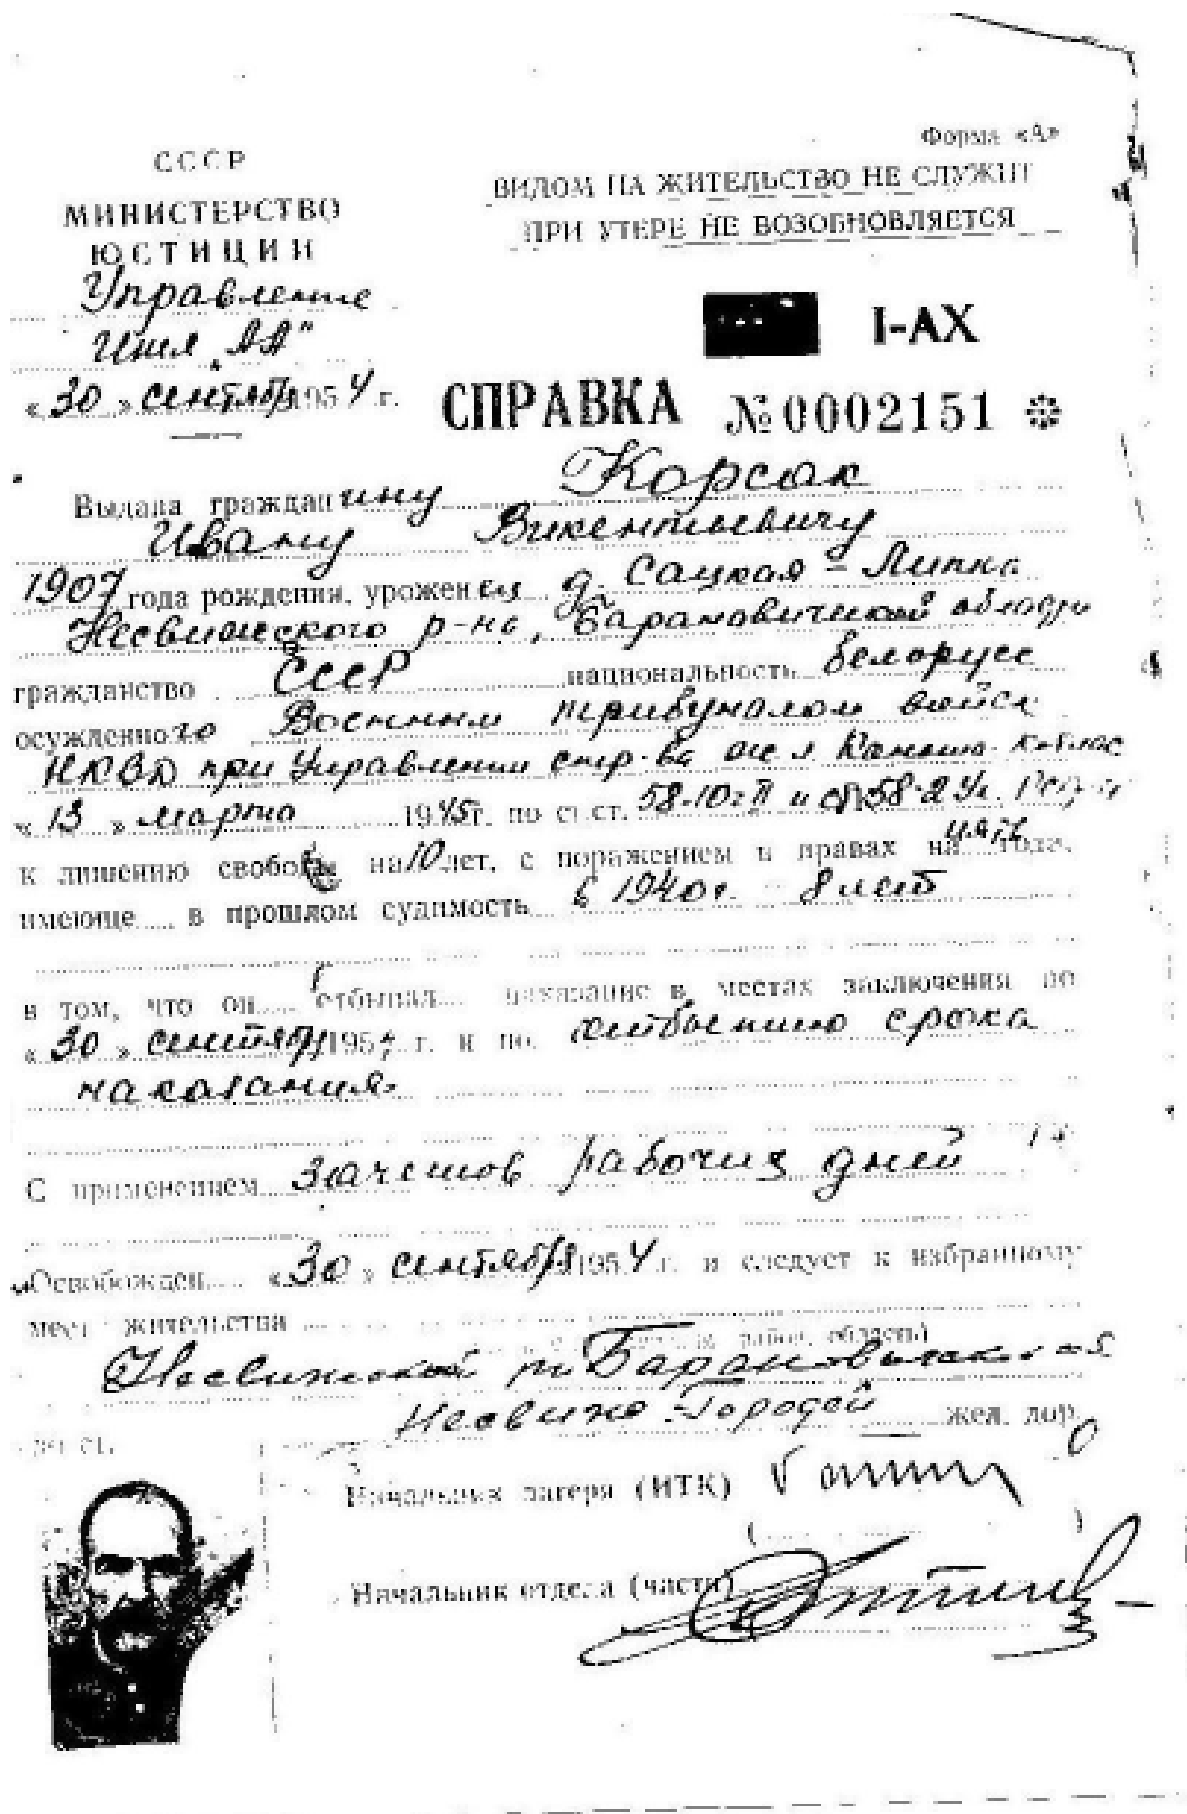 Форма «А»
СССР
ВИДОМ НА ЖИТЕЛЬСТВО НЕ СЛУЖИТ
МИНИСТЕРСТВО
ПРИ УТЕРЕ НЕ ВОЗОБНОВЛЯЕТСЯ
ЮСТИЦИИ
Управление
"АА"
I-АХ
«30» сентября 1954 г.
СПРАВКА №0002151
Выдана гражданину Корсак
Ивану Викентьевичу
1907 года рождения, урожен д. Сацкая-Липка
Несвижского р-на, Барановичской области
гражданство СССР национальность белорусс
осужденного Военным трибуналом войск
НКВД при Управлении стр-ва Коноша-Котлас
«13» марта 1945г. по ст.ст. 58-10 и 58-2
к лишению свободы на 10 лет, с поражением в правах на пять года,
имеюще в прошлом судимость в 1940г. 8 лет
в том, что он отбывал наказание в местах заключения по
«30» сентября 1954 г. и по отбытию срока
наказания
С применением зачетов рабочих дней
Освобожден «30» сентября 1954 г. и следует к избранному
мест жительства
район, область)
Несвижский Барановичская
Несвиж-Городея жел. дор.
Начальник лагеря (ИТК)
Начальник отдела (части)